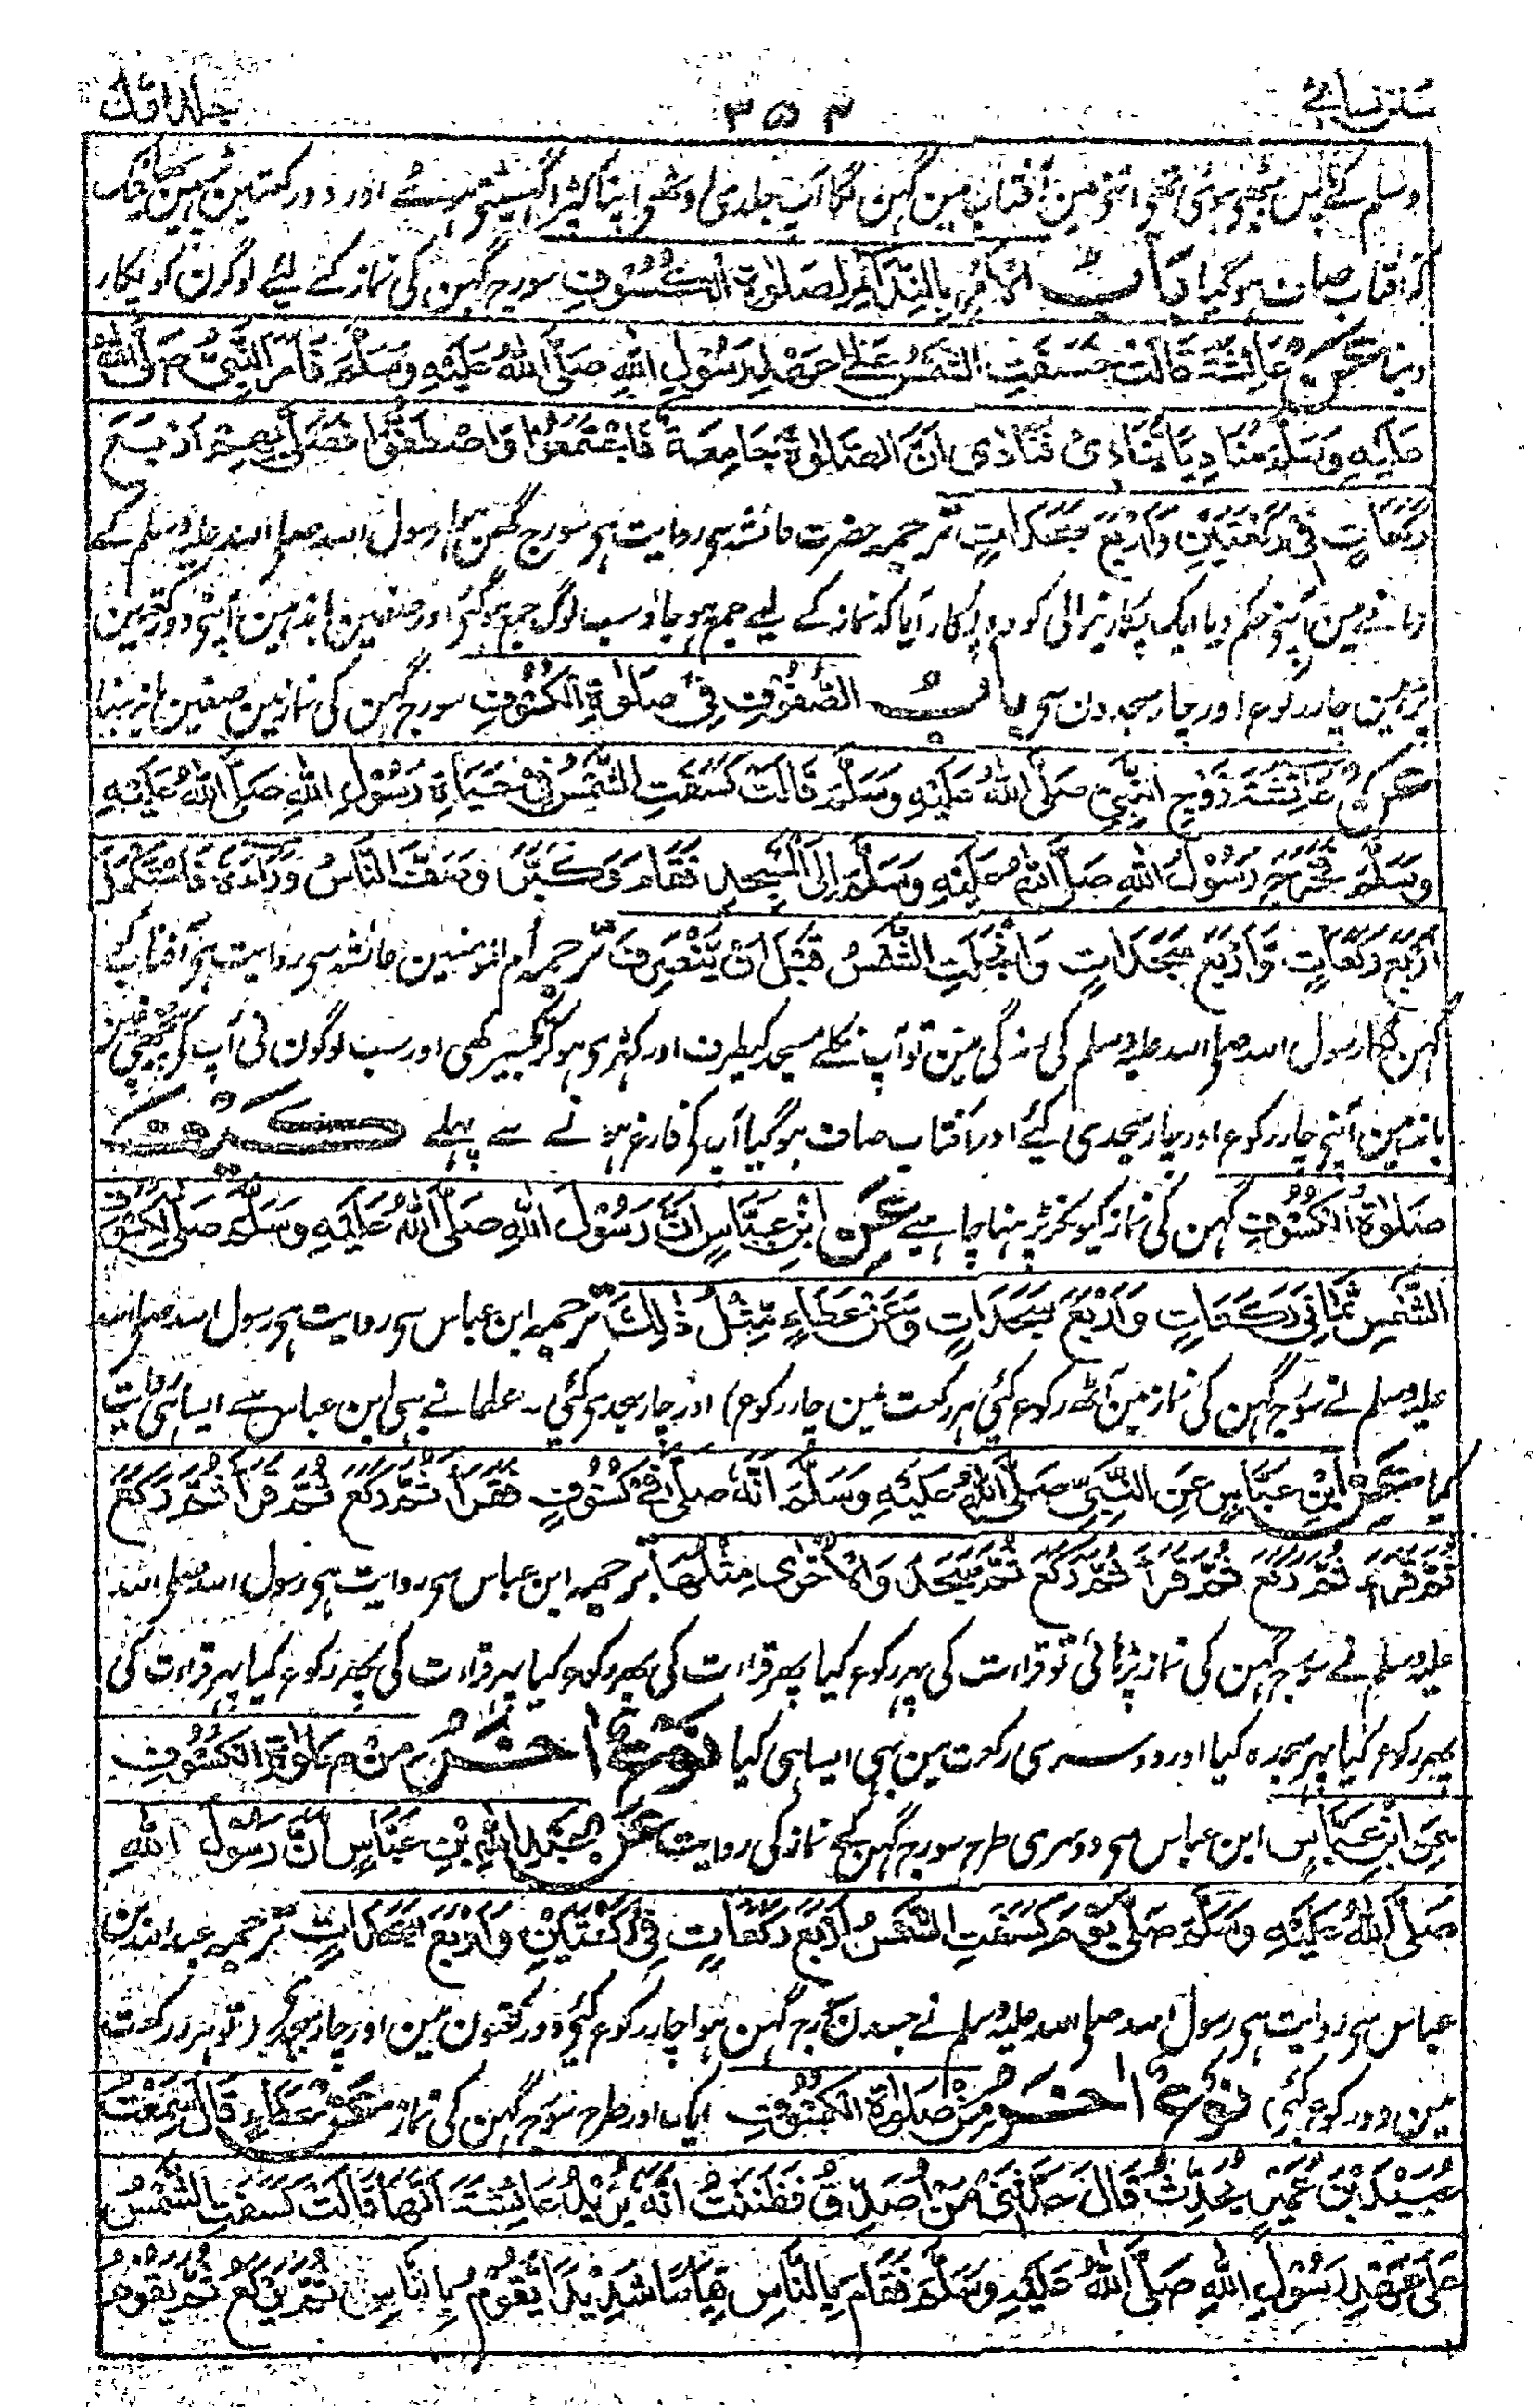 سنن نسائی ۳۵۴ جلد اول
وسلم کے پاس بیٹھی ہوئی تھی اتنی مین آفتاب مین گہن لگا آپ جلدی اوٹھی اپنا کپڑا گھسیٹتی ہوئے اور دو رکعتین پڑہین یہانتک
کہ آفتاب صاف ہوگیا باب الامر بالنداء لصلوٰة الكسوف سورج گہن کی نماز کے لئے لوگون کو پکار
دینا عَنْ عَائِشَةَ قَالَتْ خَسَفَتِ الشَّمْسُ عَلٰى عَهْدِ رَسُوْلِ اللهِ صَلَّى اللهُ عَلَيْهِ وَسَلَّمَ فَاَمَرَ النَّبِيُّ صَلَّى اللهُ
عَلَيْهِ وَسَلَّمَ مُنَادِيًا يُنَادِيْ فَنَادٰى اَنَّ الصَّلٰوةَ جَامِعَةٌ فَاجْتَمَعُوْا وَاصْطَفُّوْا فَصَلّٰى بِهِمْ اَرْبَعَ
رَكَعَاتٍ فِيْ رَكْعَتَيْنِ وَاَرْبَعَ سَجَدَاتٍ ترجمہ حضرت عائشہ سی روایت ہی سورج گہن ہوا رسول اللہ صلی اللہ علیہ وسلم کے
زمانے مین آپنی حکم دیا ایک پکارنیوالی کو وہ پکار آیا کہ نماز کے لیے جمع ہو جاؤ سب لوگ جمع ہوگئی اور صفین باندہین آپنی دو رکعتین
پڑہین چار رکوع اور چار سجدون سی باب الصُّفُوْفِ فِيْ صَلٰوةِ الْكُسُوْفِ سورج گہن کی نماز مین صفین باندہنا
عَنْ عَائِشَةَ زَوْجِ النَّبِيِّ صَلَّى اللهُ عَلَيْهِ وَسَلَّمَ قَالَتْ كَسَفَتِ الشَّمْسُ فِيْ حَيَاةِ رَسُوْلِ اللهِ صَلَّى اللهُ عَلَيْهِ
وَسَلَّمَ فَخَرَجَ رَسُوْلُ اللهِ صَلَّى اللهُ عَلَيْهِ وَسَلَّمَ اِلَى الْمَسْجِدِ فَقَامَ وَكَبَّرَ وَصَفَّ النَّاسُ وَرَاءَهٗ فَاسْتَكْمَلَ
اَرْبَعَ رَكَعَاتٍ وَّاَرْبَعَ سَجَدَاتٍ وَانْجَلَتِ الشَّمْسُ قَبْلَ اَنْ يَّنْصَرِفَ ترجمہ ام المومنین عائشہ سی روایت ہی آفتاب کو
گہن لگا رسول اللہ صلی اللہ علیہ وسلم کی زندگی مین تو آپ نکلے مسجد کیطرف اور کہڑی ہو کر تکبیر کھی اور سب لوگون نی آپ کی پیچھی صفین
باندہین آپنی چار رکوع اور چار سجدی کیے اور آفتاب صاف ہوگیا آپ کی فارغ ہونے سے پہلے كَيْفَ
صَلٰوةُ الْكُسُوْفِ گہن کی نماز کیونکر پڑہنا چاہیے عَنِ ابْنِ عَبَّاسٍ اَنَّ رَسُوْلَ اللهِ صَلَّى اللهُ عَلَيْهِ وَسَلَّمَ صَلّٰى لِكُسُوْفِ
الشَّمْسِ ثَمَانِيَ رَكَعَاتٍ وَاَرْبَعَ سَجَدَاتٍ وَعَنْ عَطَاءٍ مِّثْلُ ذٰلِكَ ترجمہ ابن عباس سی روایت ہی رسول اللہ صلی اللہ
علیہ وسلم نے سورج گہن کی نماز مین آٹھ رکوع کئی (ہر رکعت مین چار رکوع) اور چار سجدی کئی۔ عطا نے بہی ابن عباس سے ایسا ہی روایت
کیا عَنِ ابْنِ عَبَّاسٍ عَنِ النَّبِيِّ صَلَّى اللهُ عَلَيْهِ وَسَلَّمَ اَنَّهٗ صَلّٰى فِيْ كُسُوْفٍ فَقَرَاَ ثُمَّ رَكَعَ ثُمَّ قَرَاَ ثُمَّ رَكَعَ
ثُمَّ قَرَاَ ثُمَّ رَكَعَ ثُمَّ قَرَاَ ثُمَّ رَكَعَ ثُمَّ سَجَدَ وَالْاُخْرٰى مِثْلُهَا ترجمہ ابن عباس سی روایت ہی رسول اللہ صلی اللہ
علیہ وسلم نے سورج گہن کی نماز پڑہائی تو قراءت کی پہر رکوع کیا پھر قراءت کی پھر رکوع کیا پہر قراءت کی پھر رکوع کیا پہر قراءت کی
پھر رکوع کیا پہر سجدہ کیا اور دوسری رکعت مین بہی ایسا ہی کیا نَوْعٌ اٰخَرُ مِنْ صَلٰوةِ الْكُسُوْفِ
عَنِ ابْنِ عَبَّاسٍ ابن عباس سی دوسری طرح سورج گہن کی نماز کی روایت عَنْ عَبْدِ اللهِ بْنِ عَبَّاسٍ اَنَّ رَسُوْلَ اللهِ
صَلَّى اللهُ عَلَيْهِ وَسَلَّمَ صَلّٰى يَوْمَ كَسَفَتِ الشَّمْسُ اَرْبَعَ رَكَعَاتٍ فِيْ رَكْعَتَيْنِ وَاَرْبَعَ سَجَدَاتٍ ترجمہ عبد اللہ بن
عباس سی روایت ہی رسول اللہ صلی اللہ علیہ وسلم نے جسدن سورج گہن ہوا چار رکوع کئی دو رکعتون مین اور چار سجدی (تو ہر رکعت
مین دو رکوع کئی) نَوْعٌ اٰخَرُ مِنْ صَلٰوةِ الْكُسُوْفِ ایک اور طرح سورج گہن کی نماز عَنْ عَطَاءٍ قَالَ سَمِعْتُ
عُبَيْدَ بْنَ عُمَيْرٍ يُحَدِّثُ قَالَ حَدَّثَنِيْ مَنْ اُصَدِّقُ فَظَنَنْتُ اَنَّهٗ يُرِيْدُ عَائِشَةَ اَنَّهَا قَالَتْ كَسَفَتِ الشَّمْسُ
عَلٰى عَهْدِ رَسُوْلِ اللهِ صَلَّى اللهُ عَلَيْهِ وَسَلَّمَ فَقَامَ بِالنَّاسِ قِيَامًا شَدِيْدًا يَقُوْمُ بِالنَّاسِ ثُمَّ يَرْكَعُ ثُمَّ يَقُوْمُ